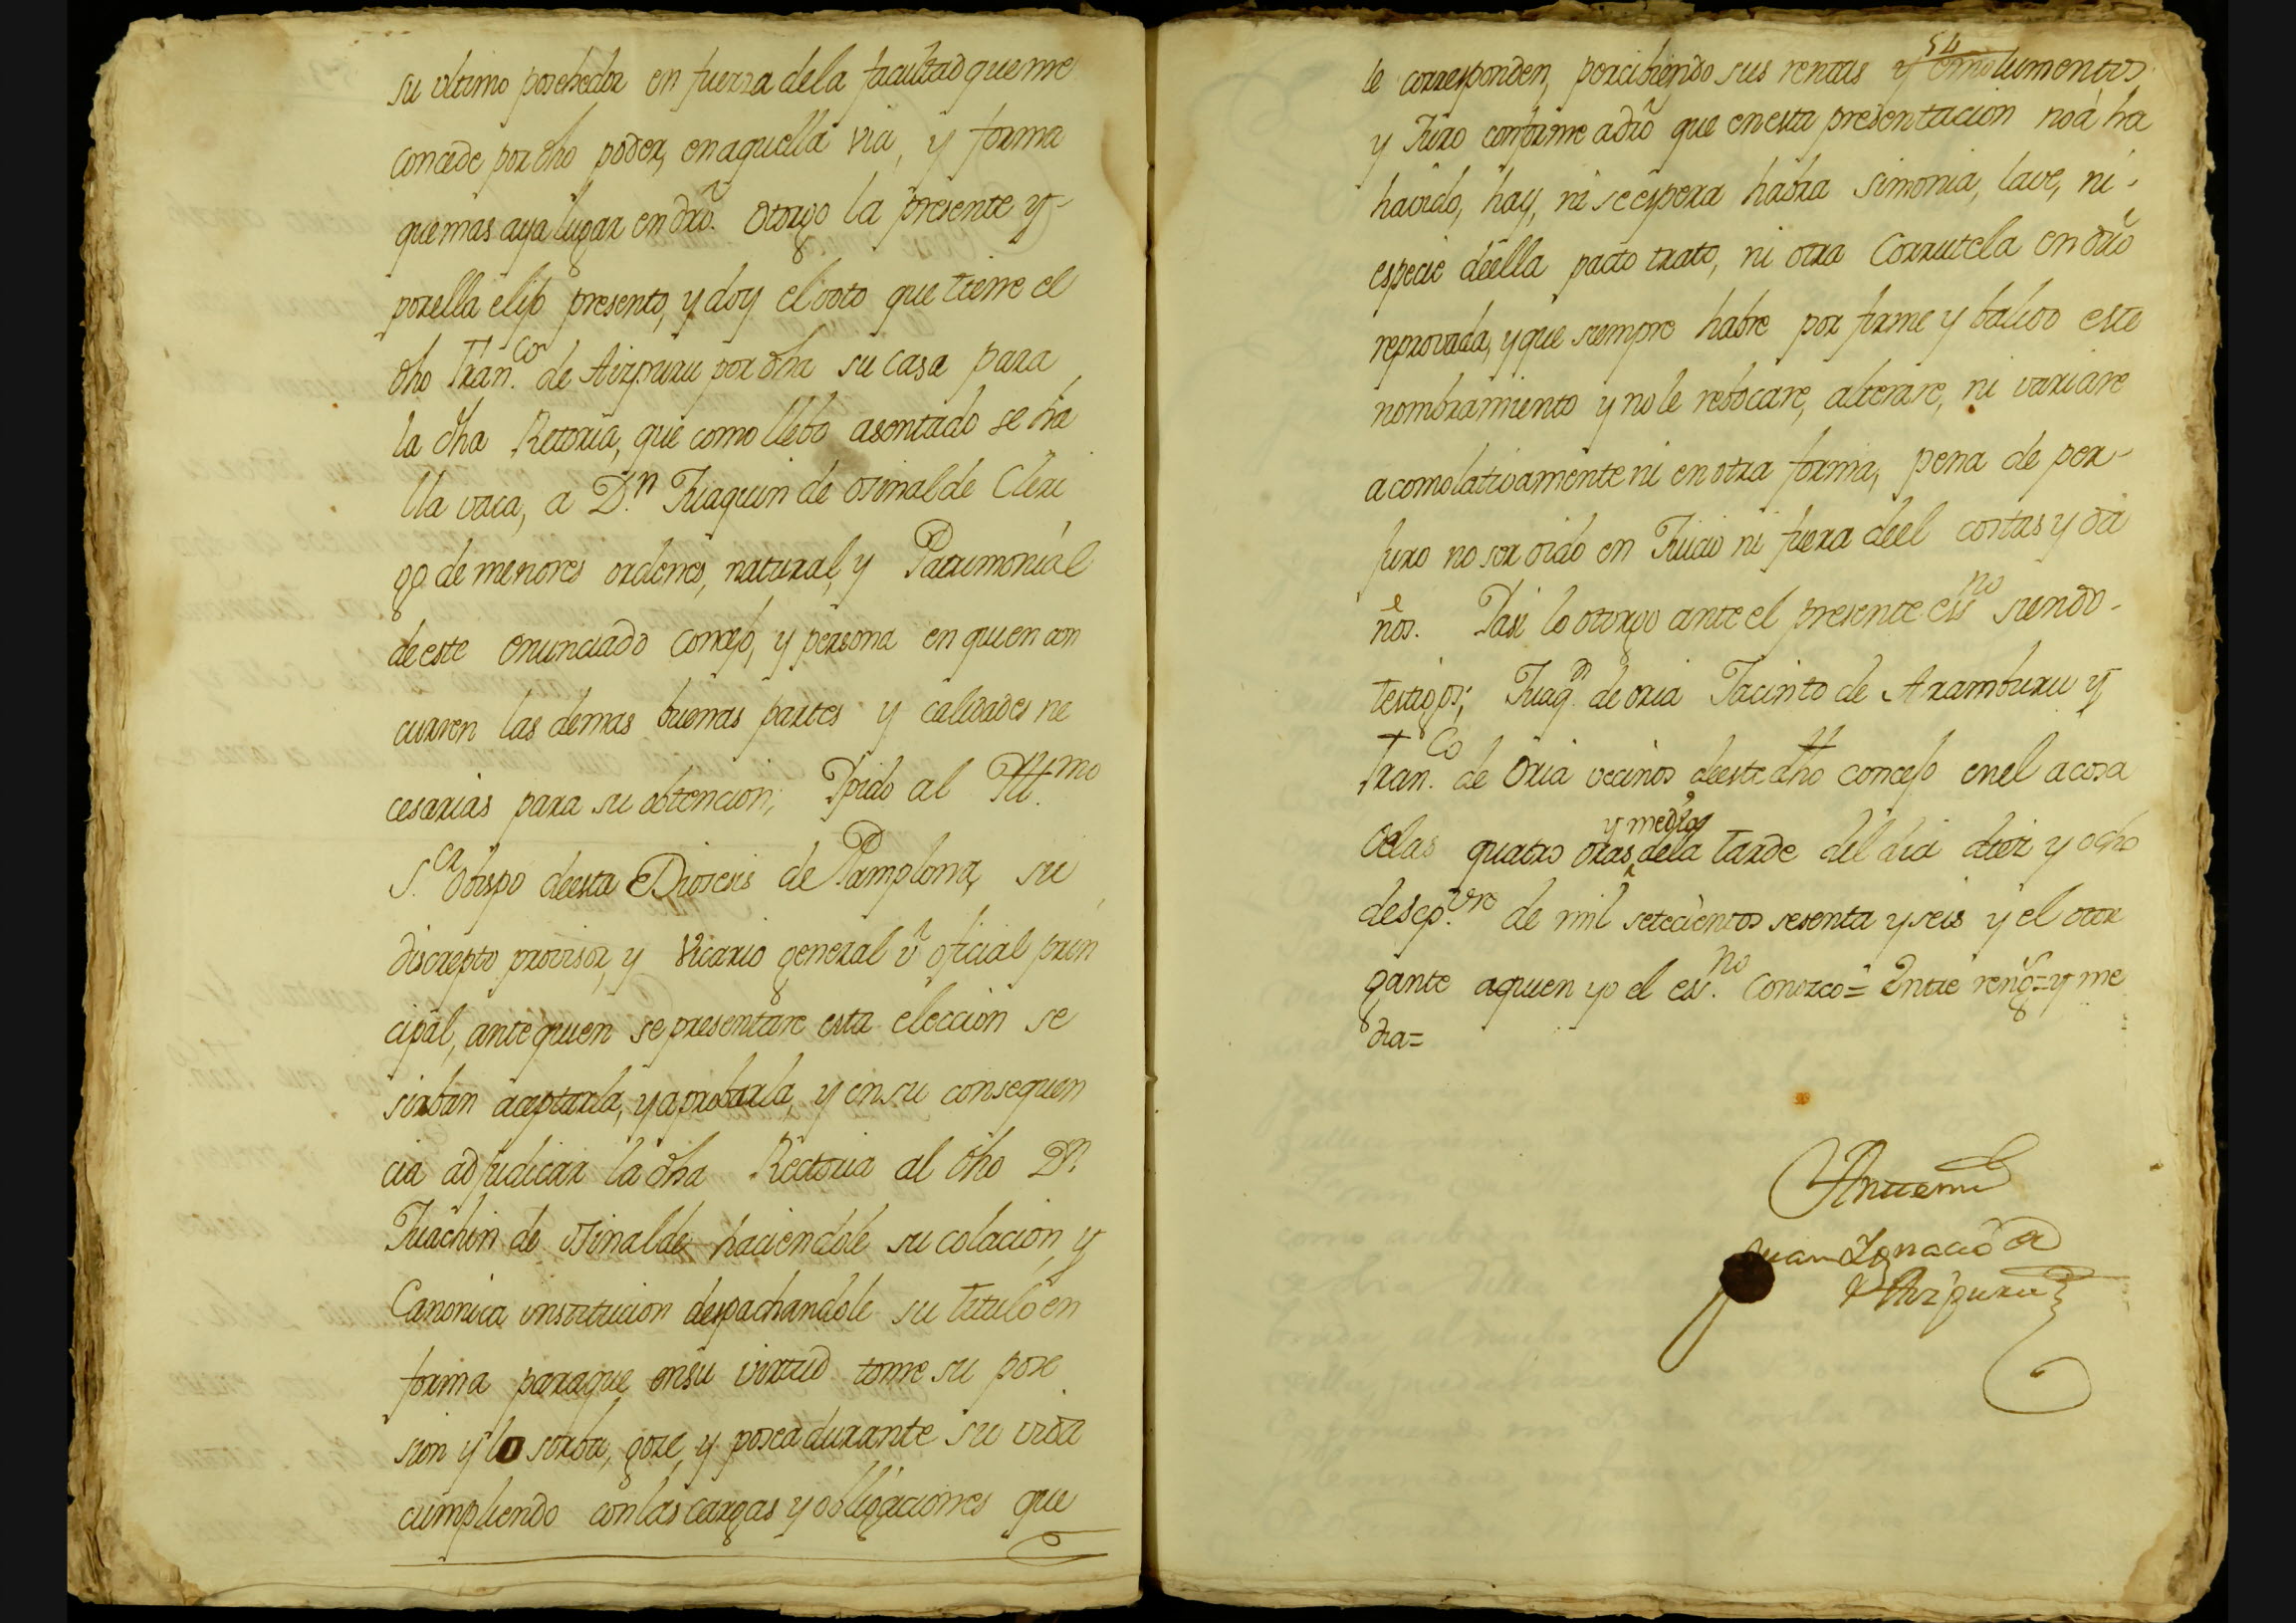 su ultimo posehedor en fuerza dela facultad que me
concede por dho poder, en aquella via, y forma
que mas aya lugar en dro. otorgo la presente y
por ella elijo presento, y doy el voto que tiene el
dho Fran.co de Aizpuru por dha su casa para
la dha Retoria, que como llebo asentado se ha
lla vaca, a D.n Juaquin de Osinalde Cleri
go de menores ordenes, natural, y Patrimonial
de este enunciado concejo, y persona en quien con
curren las demas buenas partes y calidades ne
cesarias para su obtencion; Ypido al Ill.mo
S.or Obispo deesta Diosesis de Pamplona, su
discrepto provisor, y Vicario general ũ oficial prin
cipal, ante quien se presentare esta eleccion se
sirban aceptarla, y aprobarla, y en su consequen
cia adjudicar la dha Rectoria al dho D.n
Juachin de Osinalde haciendole su colacion, y
Canonica institucion despachandole su titulo en
forma paraque en su virtud tome su pose
sion y lo sirba, goze, y posea durante su vida
cumpliendo con las cargas y obligaciones que
54
le corresponden, percibiendo sus rentas y emolumentos,
y Juro conforme a dro que en esta presentacion no á ha
havido, hay, ni se espera habra simonia, lave, ni
especie deella pacto trato, ni otra Corrutela en dro
reprovada, y que siempre habre por firme y balido este
nombramiento y no le rebocare, alterare, ni variare
acomolativamente ni en otra forma, pena de per-
juro no ser oido en Juicio ni fuera deel costas y da
ños. Yasi lo otorgo ante el presente ess.no siendo
testigos; Juaq.n de Oria Jacinto de Aramburu y
Fran.co de Oria vecinos deeste dho concejo en el acosa
delas quatro oras y media dela tarde del dia diez y ocho
de sep.vre de mil setecientos sesenta y seis y el otor
gante aquien yo el ess.no Conozco= Entre reño= y me
dia=
Antemi
Juan Ignacio de
Aizpuru